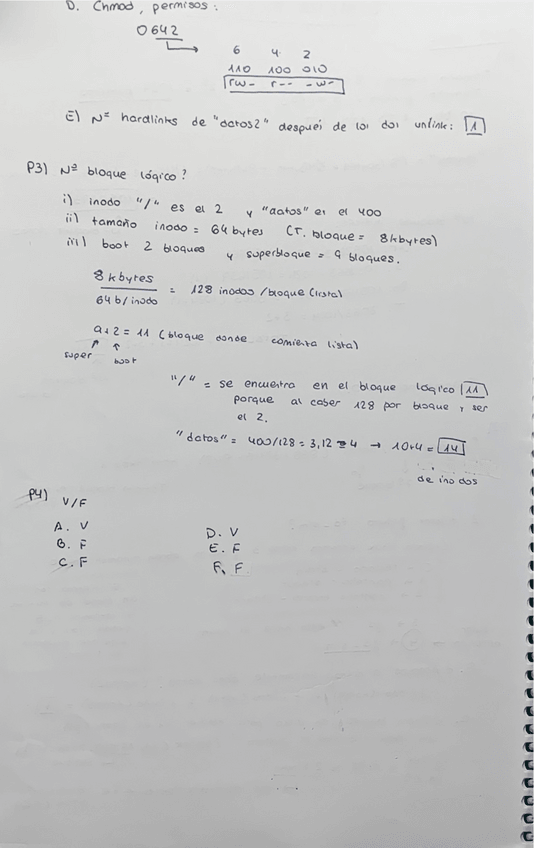 D. Chmod, permisos:
0642
6 4 2
110 100 010
rw- r-- -w-
E) Nº hardlinks de "datos2" despues de los dos unlink: 1
P3) Nº bloque lógico?
i) inodo "/" es el 2 y "datos" es el 400
ii) tamaño inodo = 64 bytes (T. bloque = 8kbytes)
iii) boot 2 bloques y superbloque = 9 bloques.
8 kbytes
64 b/inodo
= 128 inodos/bloque (lista)
9+2 = 11 (bloque donde comienza lista)
super boot
"/" = se encuentra en el bloque lógico 11
porque al caber 128 por bloque y ser
el 2.
"datos" = 400/128 = 3,12 ≅ 4 → 10+4 = 14
de inodos
P4) V/F
A. V
B. F
C. F
D. V
E. F
F. F